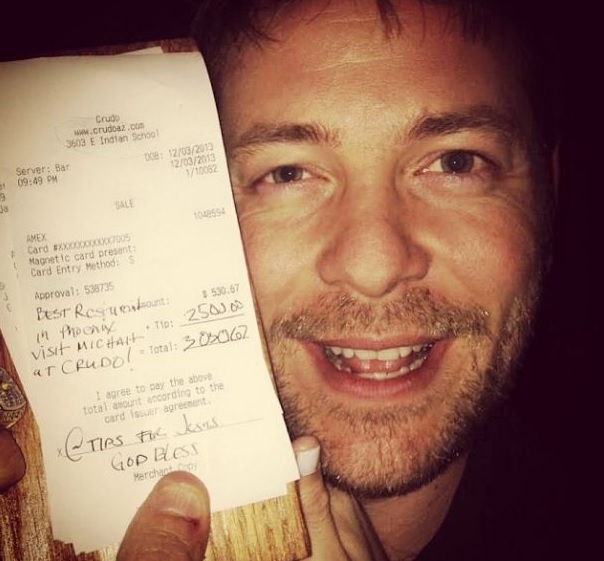 Crudo
www.crudoaz.com
3603 E Indian School
Server: Bar
DOB: 12/03/2013
09:49 PM
12/03/2013
1/10082
SALE
1048594
AMEX
Card #XXXXXXXXXXX7005
Magnetic card present:
Card Entry Method: S
Approval: 538735
Amount: $ 530.67
BEST RESTAURANT
IN PHOENIX
+ Tip: 2500.00
VISIT MICHAH
= Total: 3030.67
AT CRUDO!
I agree to pay the above
total amount according to the
card issuer agreement.
x @TIPS FOR JESUS
GOD BLESS
Merchant Copy